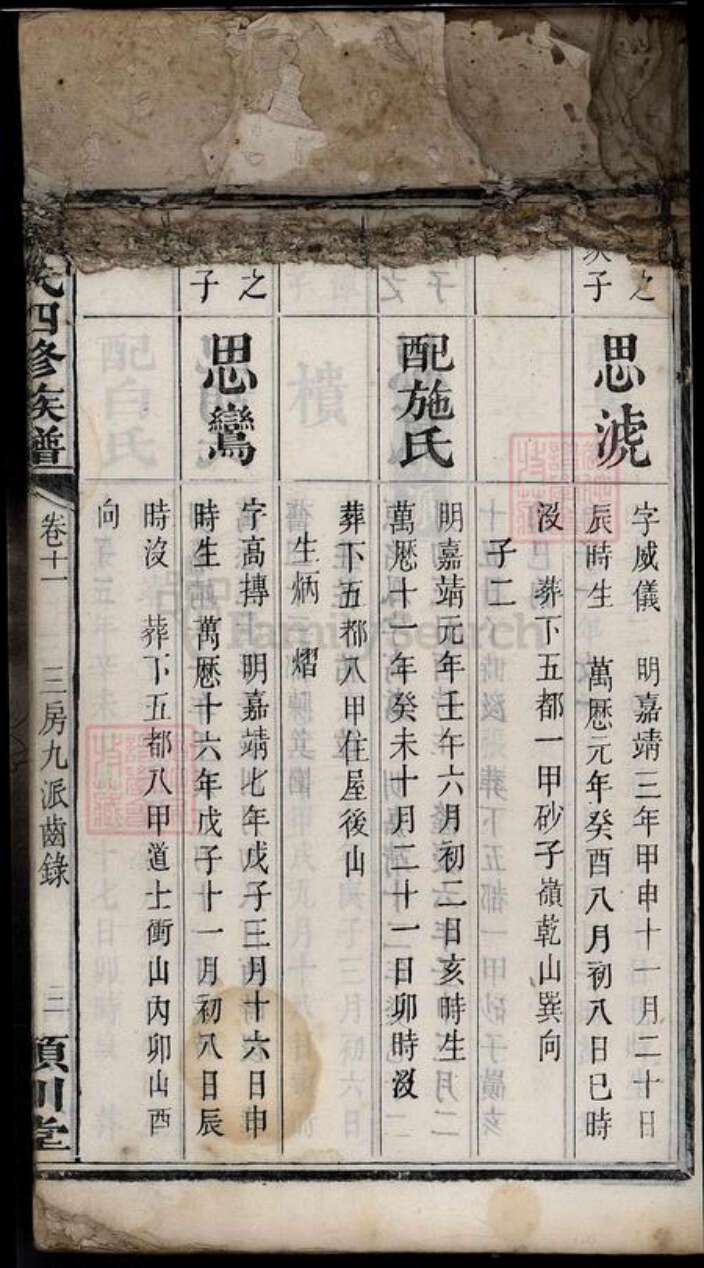 之
子
思淲
字威儀 明嘉靖三年甲申十一月二十日
辰時生 萬厯元年癸酉八月初八日巳時
沒 葬下五都一甲砂子嶺乾山巽向
子二
配施氏
明嘉靖元年壬午六月初二日亥時生
萬厯十一年癸未十月二十一日卯時沒
葬下五都八甲住屋後山
生炳 熠
之
子
思鸞
字高摶 明嘉靖七年戊子三月十六日申
時生 萬厯十六年戊子十一月初八日辰
時沒 葬下五都八甲道士衝山內卯山酉
向
氏四修族譜
卷十一 三房九派齒錄 二
潁川堂
FamilySearch